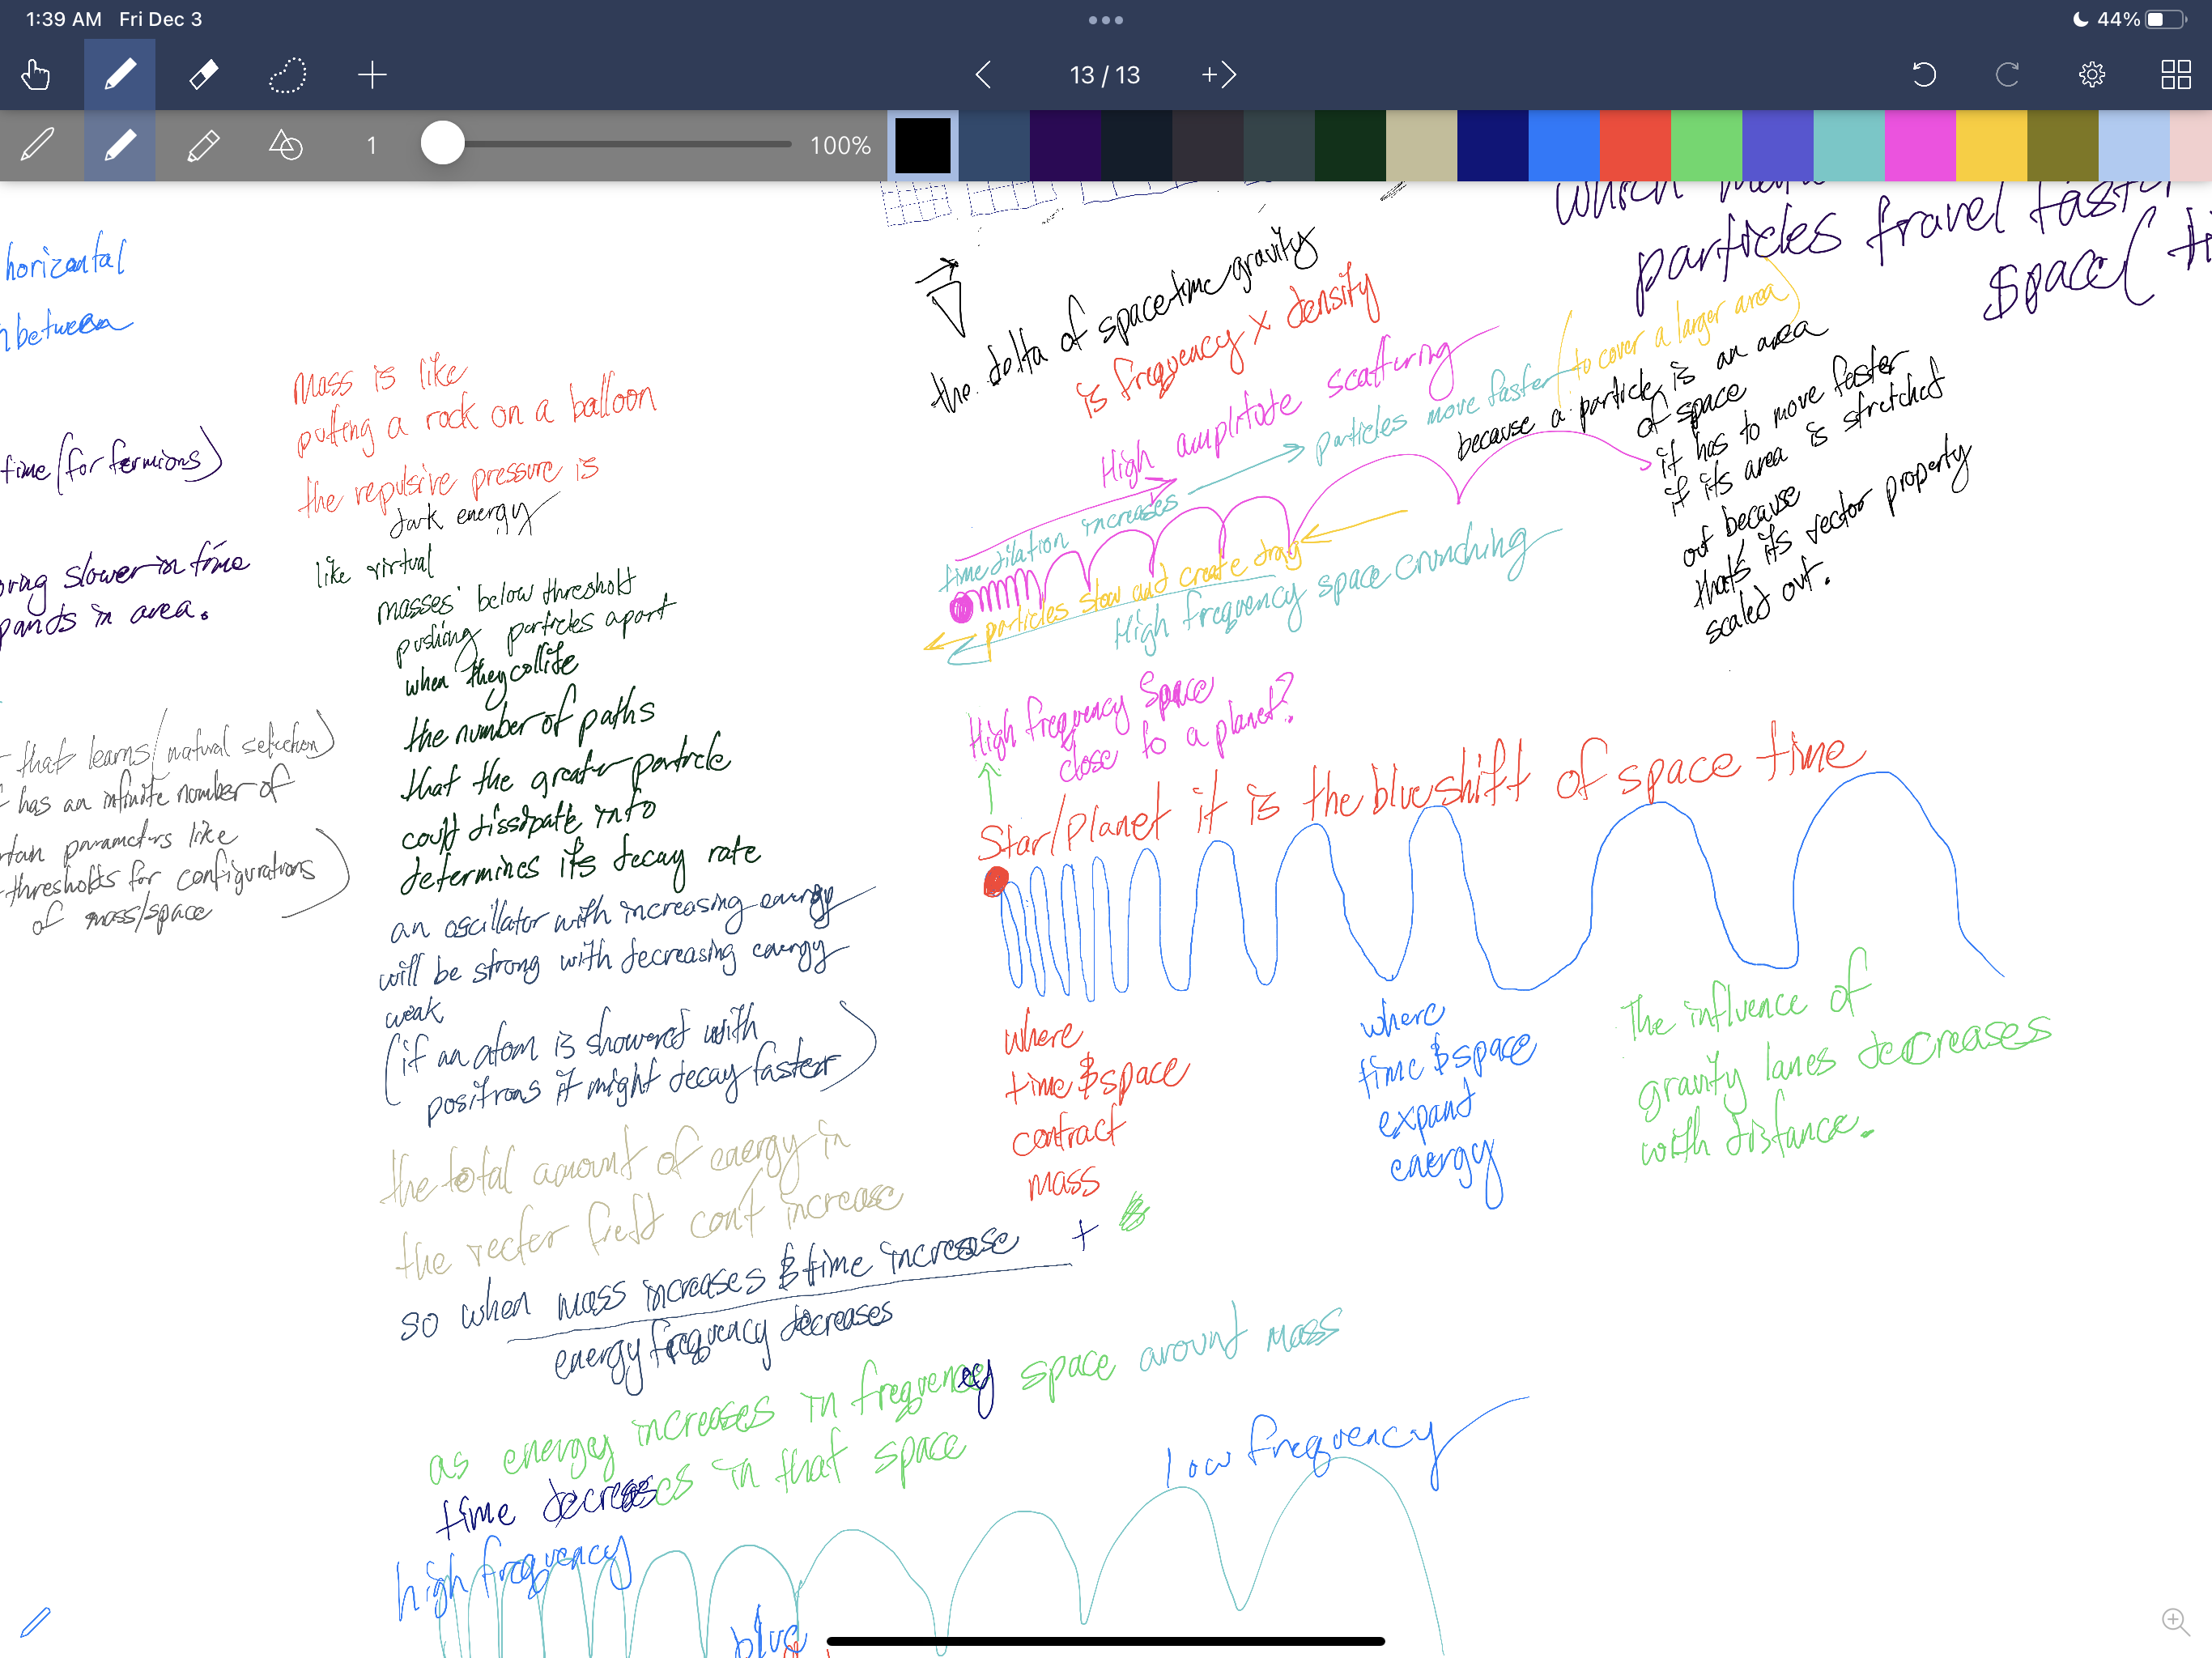 1:39 AM Fri Dec 3
44%
13 / 13
1
100%
horizontal
between
time (for fermions)
slower in time
in area.
that learns (natural selection)
has an infinite number of
parameters like
thresholds for configurations
of mass/space
Mass is like
putting a rock on a balloon
the repulsive pressure is
dark energy
like virtual
masses below threshold
pushing particles apart
when they collide
the number of paths
that the greater particle
could dissipate into
determines its decay rate
an oscillator with increasing energy
will be strong with decreasing energy
weak
(if an atom is showered with
positrons it might decay faster)
the total amount of energy in
the vector field can't increase
so when mass increases & time increase +
energy frequency decreases
as energy increases in frequency space around mass
time decreases in that space
high frequency
low frequency
blue
the delta of spacetime gravity
is frequency x density
High amplitude scattering
particles move faster (to cover a larger area)
time dilation increases
particles slow and create drag
High frequency space crunching
because a particle is an area
of space
it has to move faster
if its area is stretched
out because
that's its vector property
scaled out.
which
particles travel faster
space (
High frequency Space
close to a planet?
Star/Planet it is the blueshift of space time
where
time & space
contract
mass
where
time & space
expand
energy
The influence of
gravity lanes decreases
with distance.